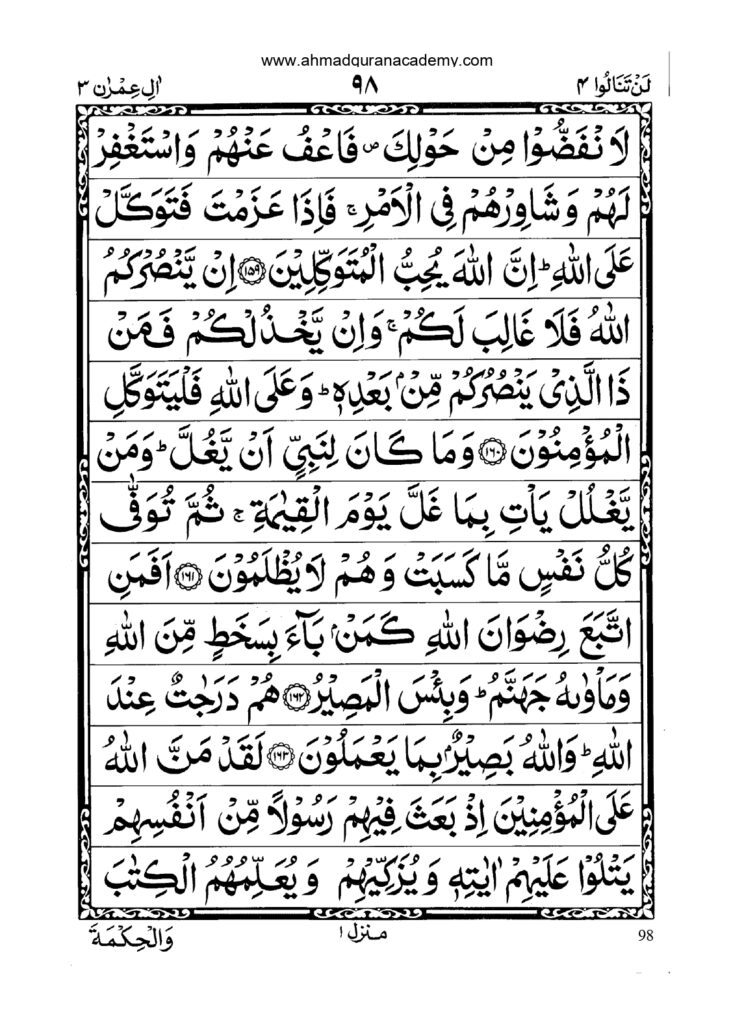 www.ahmadquranacademy.com
لَنْ تَنَالُوا ۴ ۹۸ اٰلِ عِمْرٰن ۳
لَا نْفَضُّوْا مِنْ حَوْلِكَ ۪ فَاعْفُ عَنْهُمْ وَاسْتَغْفِرْ
لَهُمْ وَشَاوِرْهُمْ فِى الْاَمْرِ ۚ فَاِذَا عَزَمْتَ فَتَوَكَّلْ
عَلَى اللّٰهِ ؕ اِنَّ اللّٰهَ يُحِبُّ الْمُتَوَكِّلِيْنَ ۝۱۵۹ اِنْ يَّنْصُرْكُمُ
اللّٰهُ فَلَا غَالِبَ لَكُمْ ۚ وَاِنْ يَّخْذُلْكُمْ فَمَنْ
ذَا الَّذِىْ يَنْصُرُكُمْ مِّنْۢ بَعْدِهٖ ؕ وَعَلَى اللّٰهِ فَلْيَتَوَكَّلِ
الْمُؤْمِنُوْنَ ۝۱۶۰ وَمَا كَانَ لِنَبِىٍّ اَنْ يَّغُلَّ ؕ وَمَنْ
يَّغْلُلْ يَاْتِ بِمَا غَلَّ يَوْمَ الْقِيٰمَةِ ۚ ثُمَّ تُوَفّٰى
كُلُّ نَفْسٍ مَّا كَسَبَتْ وَهُمْ لَا يُظْلَمُوْنَ ۝۱۶۱ اَفَمَنِ
اتَّبَعَ رِضْوَانَ اللّٰهِ كَمَنْۢ بَآءَ بِسَخَطٍ مِّنَ اللّٰهِ
وَمَاْوٰىهُ جَهَنَّمُ ؕ وَبِئْسَ الْمَصِيْرُ ۝۱۶۲ هُمْ دَرَجٰتٌ عِنْدَ
اللّٰهِ ؕ وَاللّٰهُ بَصِيْرٌۢ بِمَا يَعْمَلُوْنَ ۝۱۶۳ لَقَدْ مَنَّ اللّٰهُ
عَلَى الْمُؤْمِنِيْنَ اِذْ بَعَثَ فِيْهِمْ رَسُوْلًا مِّنْ اَنْفُسِهِمْ
يَتْلُوْا عَلَيْهِمْ اٰيٰتِهٖ وَيُزَكِّيْهِمْ وَيُعَلِّمُهُمُ الْكِتٰبَ
98 منزل ۱ وَالْحِكْمَةَ